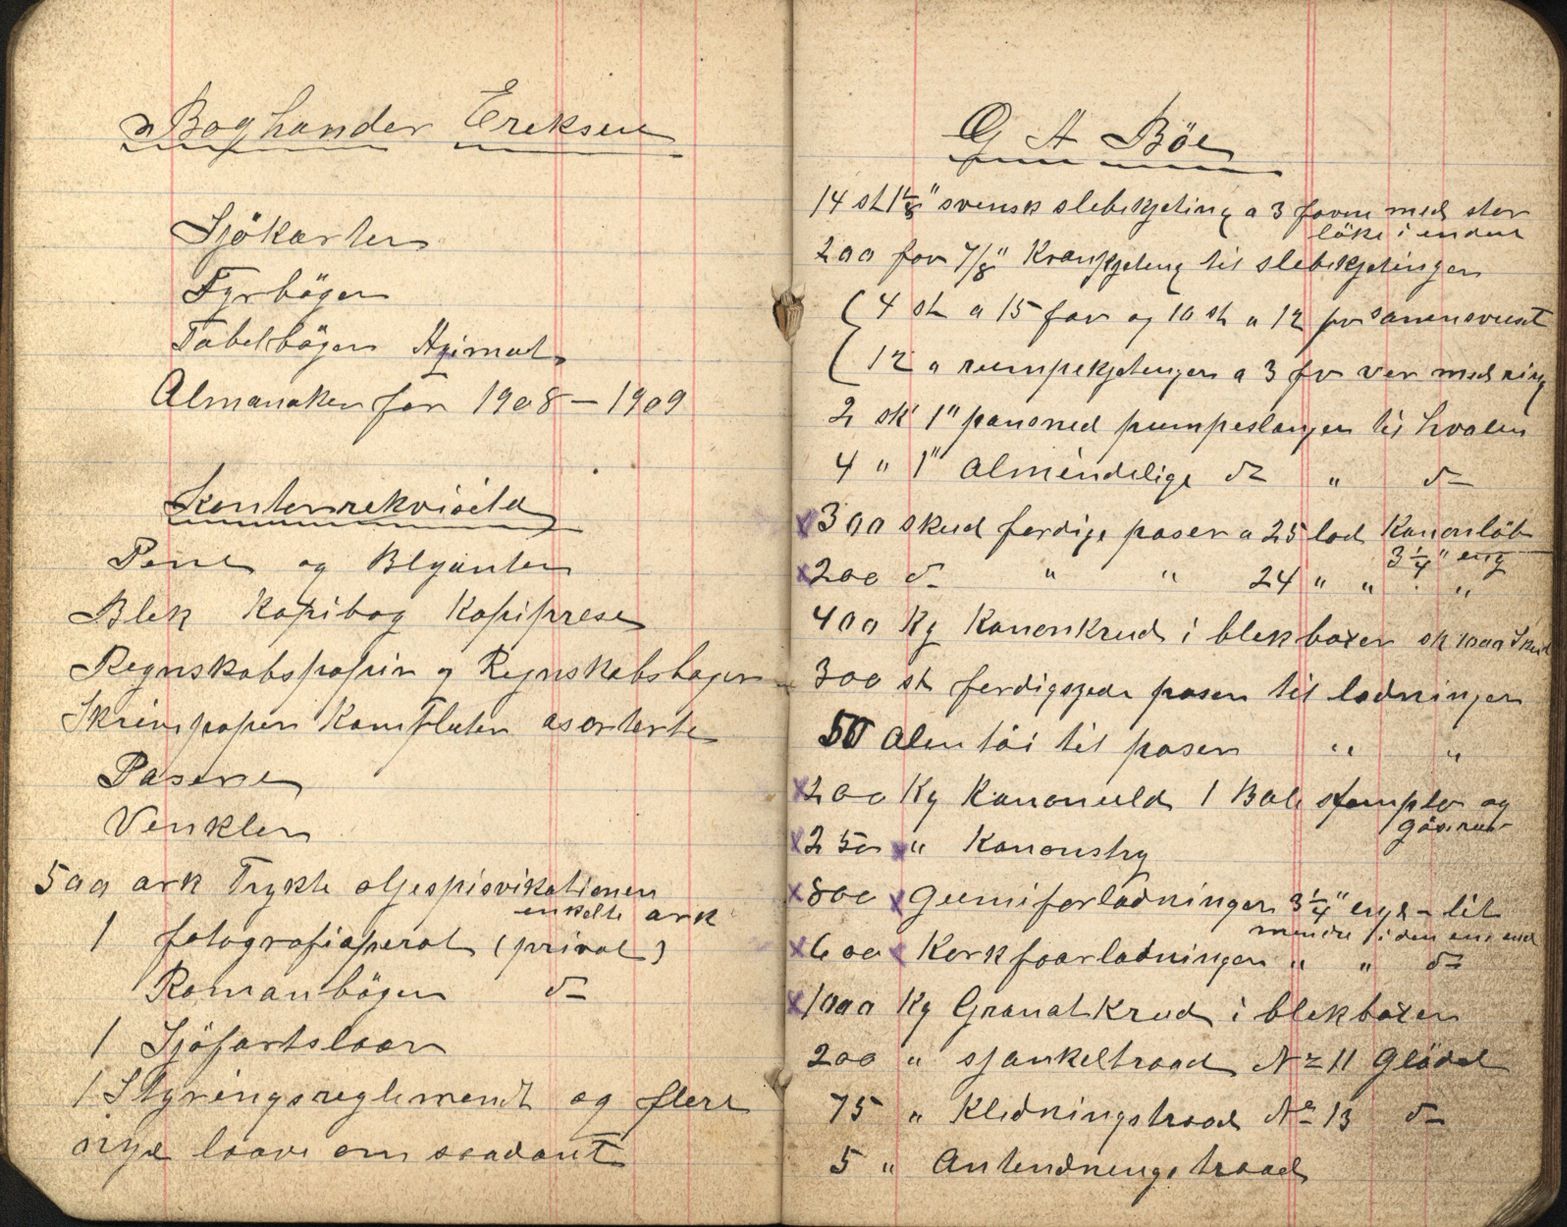 Boghander Ereksen
Sjökarter
Fyrböger
Tabelböger
Almanaker for 1908 – 1909
Kontorrekvisita
Pene og Blyanter
Blek Kopibog Kopiprese
Regnskabspapir og Regnskabsbøger
Skrivepaper Konfluter asorterte
Pasere
Venkler
500 ark Trykte oljespisvikationer
enkelte ark
1 fotografiaperat (privat)
Romanböger do
1 Sjöfartsloov
1 Styringsreglement og flere
nye loove om soadant
G A Böe
14 st 1 1/8" svensk slebekjeting a 3 favne med stor
löke i enden
200 fav 7/8" Krankjeting til slebekjetingen
(4 st a 15 fav og 10 st a 12 fv
(12 a rumpekjetinger a 3 fv ver med ring
2 st 1" pansred pumpeslanger til hvalen
4 " 1" Almindelige do " do
x 300 skud ferdige poser a 25 lod Kanonlöb
3 1/4" eng
x 200 do " " 24 " " "
400 Kg Kanonkrud i blekboxer st 1000 Skud
300 st ferdigsyede poser til ladninger
50 Alen töi til poser " "
x 200 Kg Kanonuld 1 Bale stempler og
x 250 x " Kanonstry
x 800 x Gumiforladninger 3 1/4" eng - lit
mindre i den ene end
x 600 x Korkfoorladninger " " do
x 1000 Kg Granatkrud i blekboxer
200 " sjankeltraad No 11 Glödet
75 " Kledningstraad No 13 do
5 " Antendningstraad